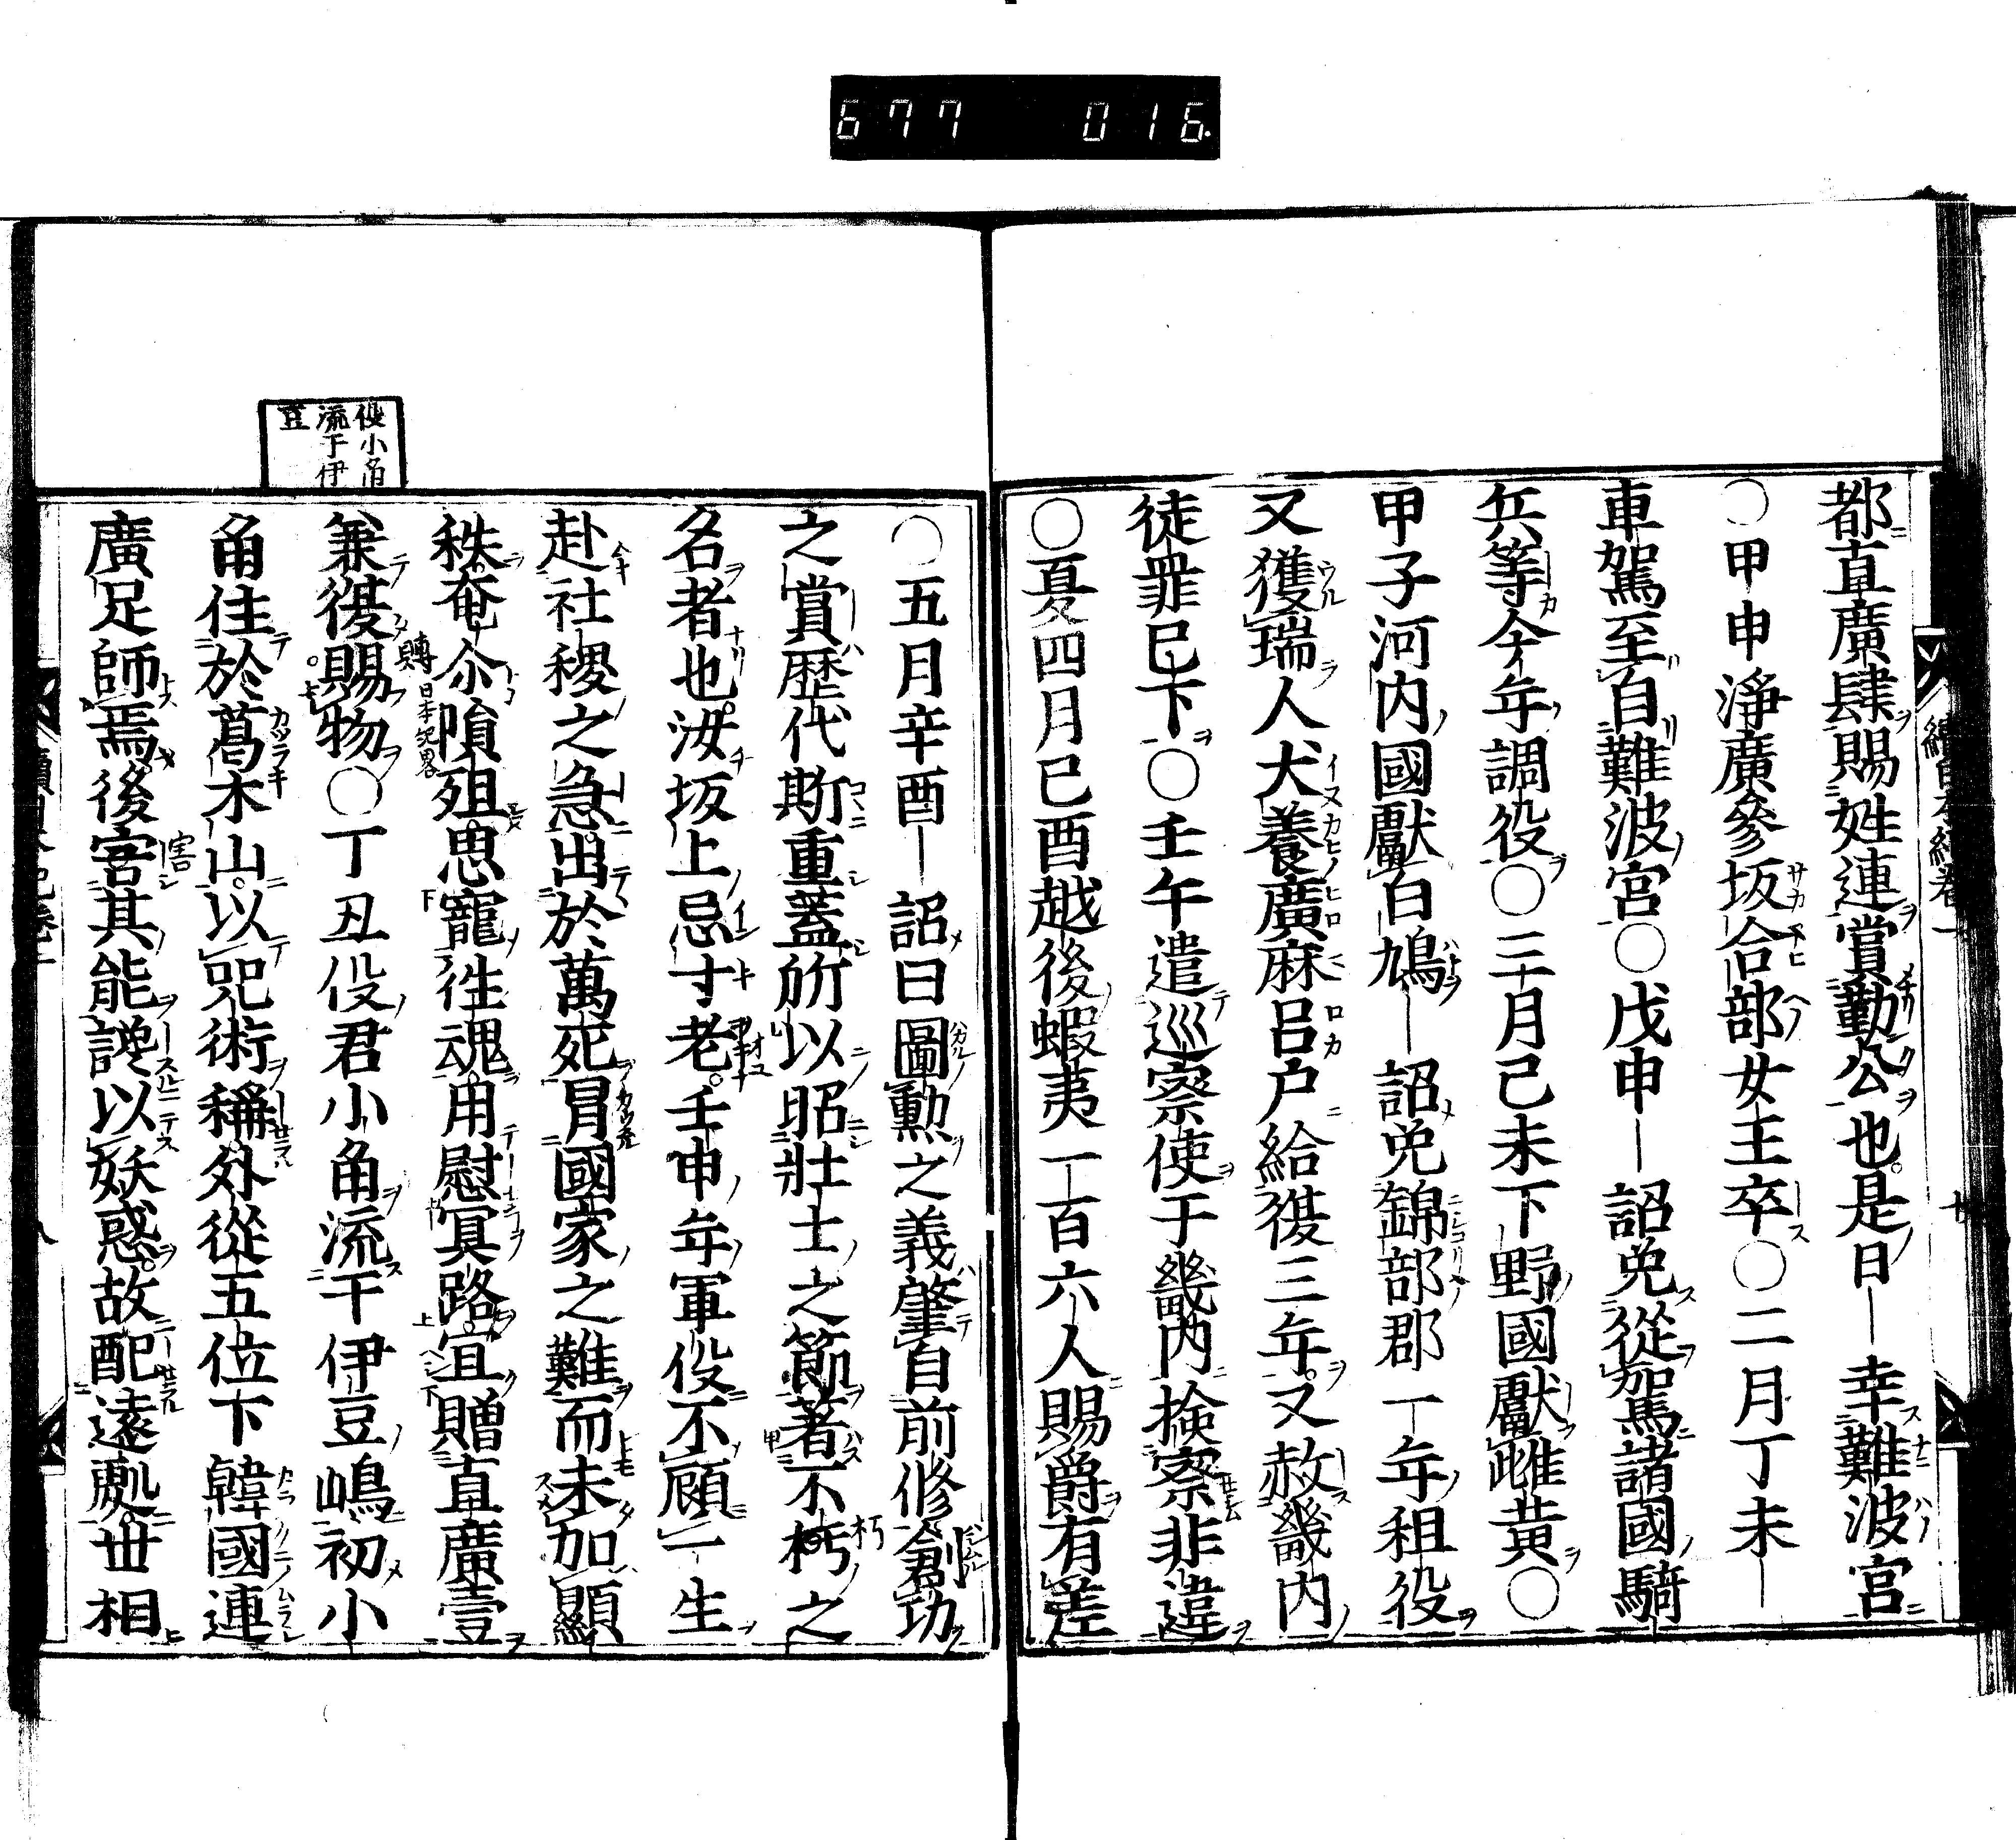 677 016.
都直廣肆賜姓連賞勤公也是日幸難波宮
○甲申淨廣參坂合部女王卒○二月丁未
車駕至自難波宮○戊申詔免從駕諸國騎
兵等今年調役○三月己未下野國獻雌黄○
甲子河内國獻白鳩詔免錦部郡一年租役
又獲瑞人犬養廣麻呂戸給復三年又赦畿内
徒罪已下○壬午遣巡察使于畿内撿察非違
○夏四月己酉越後蝦夷一百六人賜爵有差
○五月辛酉詔曰圖勲之義肇自前修創功
之賞歴代斯重蓋所以昭壯士之節著不朽之
名者也汝坂上忌寸老壬申年軍役不顧一生
赴社稷之急出於萬死冒國家之難而未加顯
秩奄尒隕殂思寵徃魂用慰冥路宜贈直廣壹
兼復賜物○丁丑役君小角流于伊豆嶋初小
角住於葛木山以咒術稱外從五位下韓國連
廣足師焉後害其能讒以妖惑故配遠處世相
役小角
流于伊
豆
賻日本紀畧
害
朽